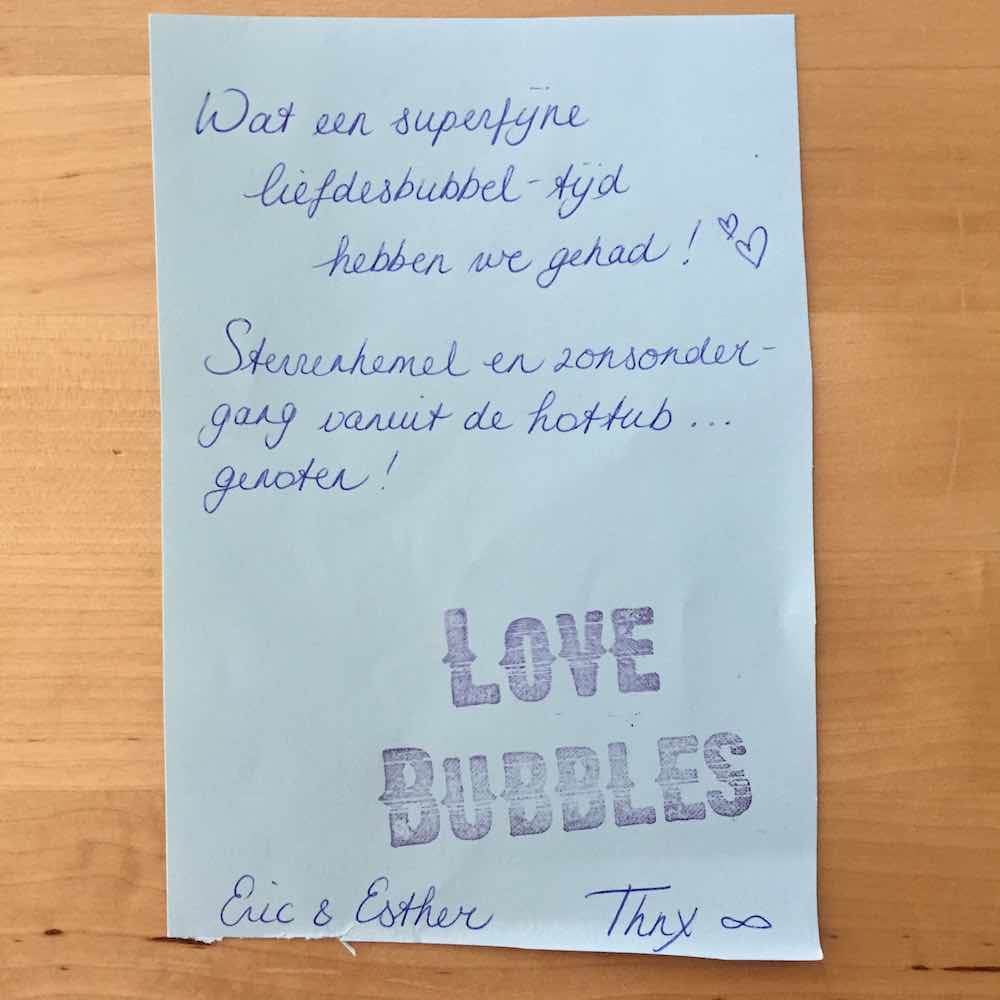 Wat een superfijne
liefdesbubbel-tijd
hebben we gehad!
Sterrenhemel en zonsonder-
gang vanuit de hottub...
genoten!
LOVE
BUBBLES
Eric & Esther Thnx ∞